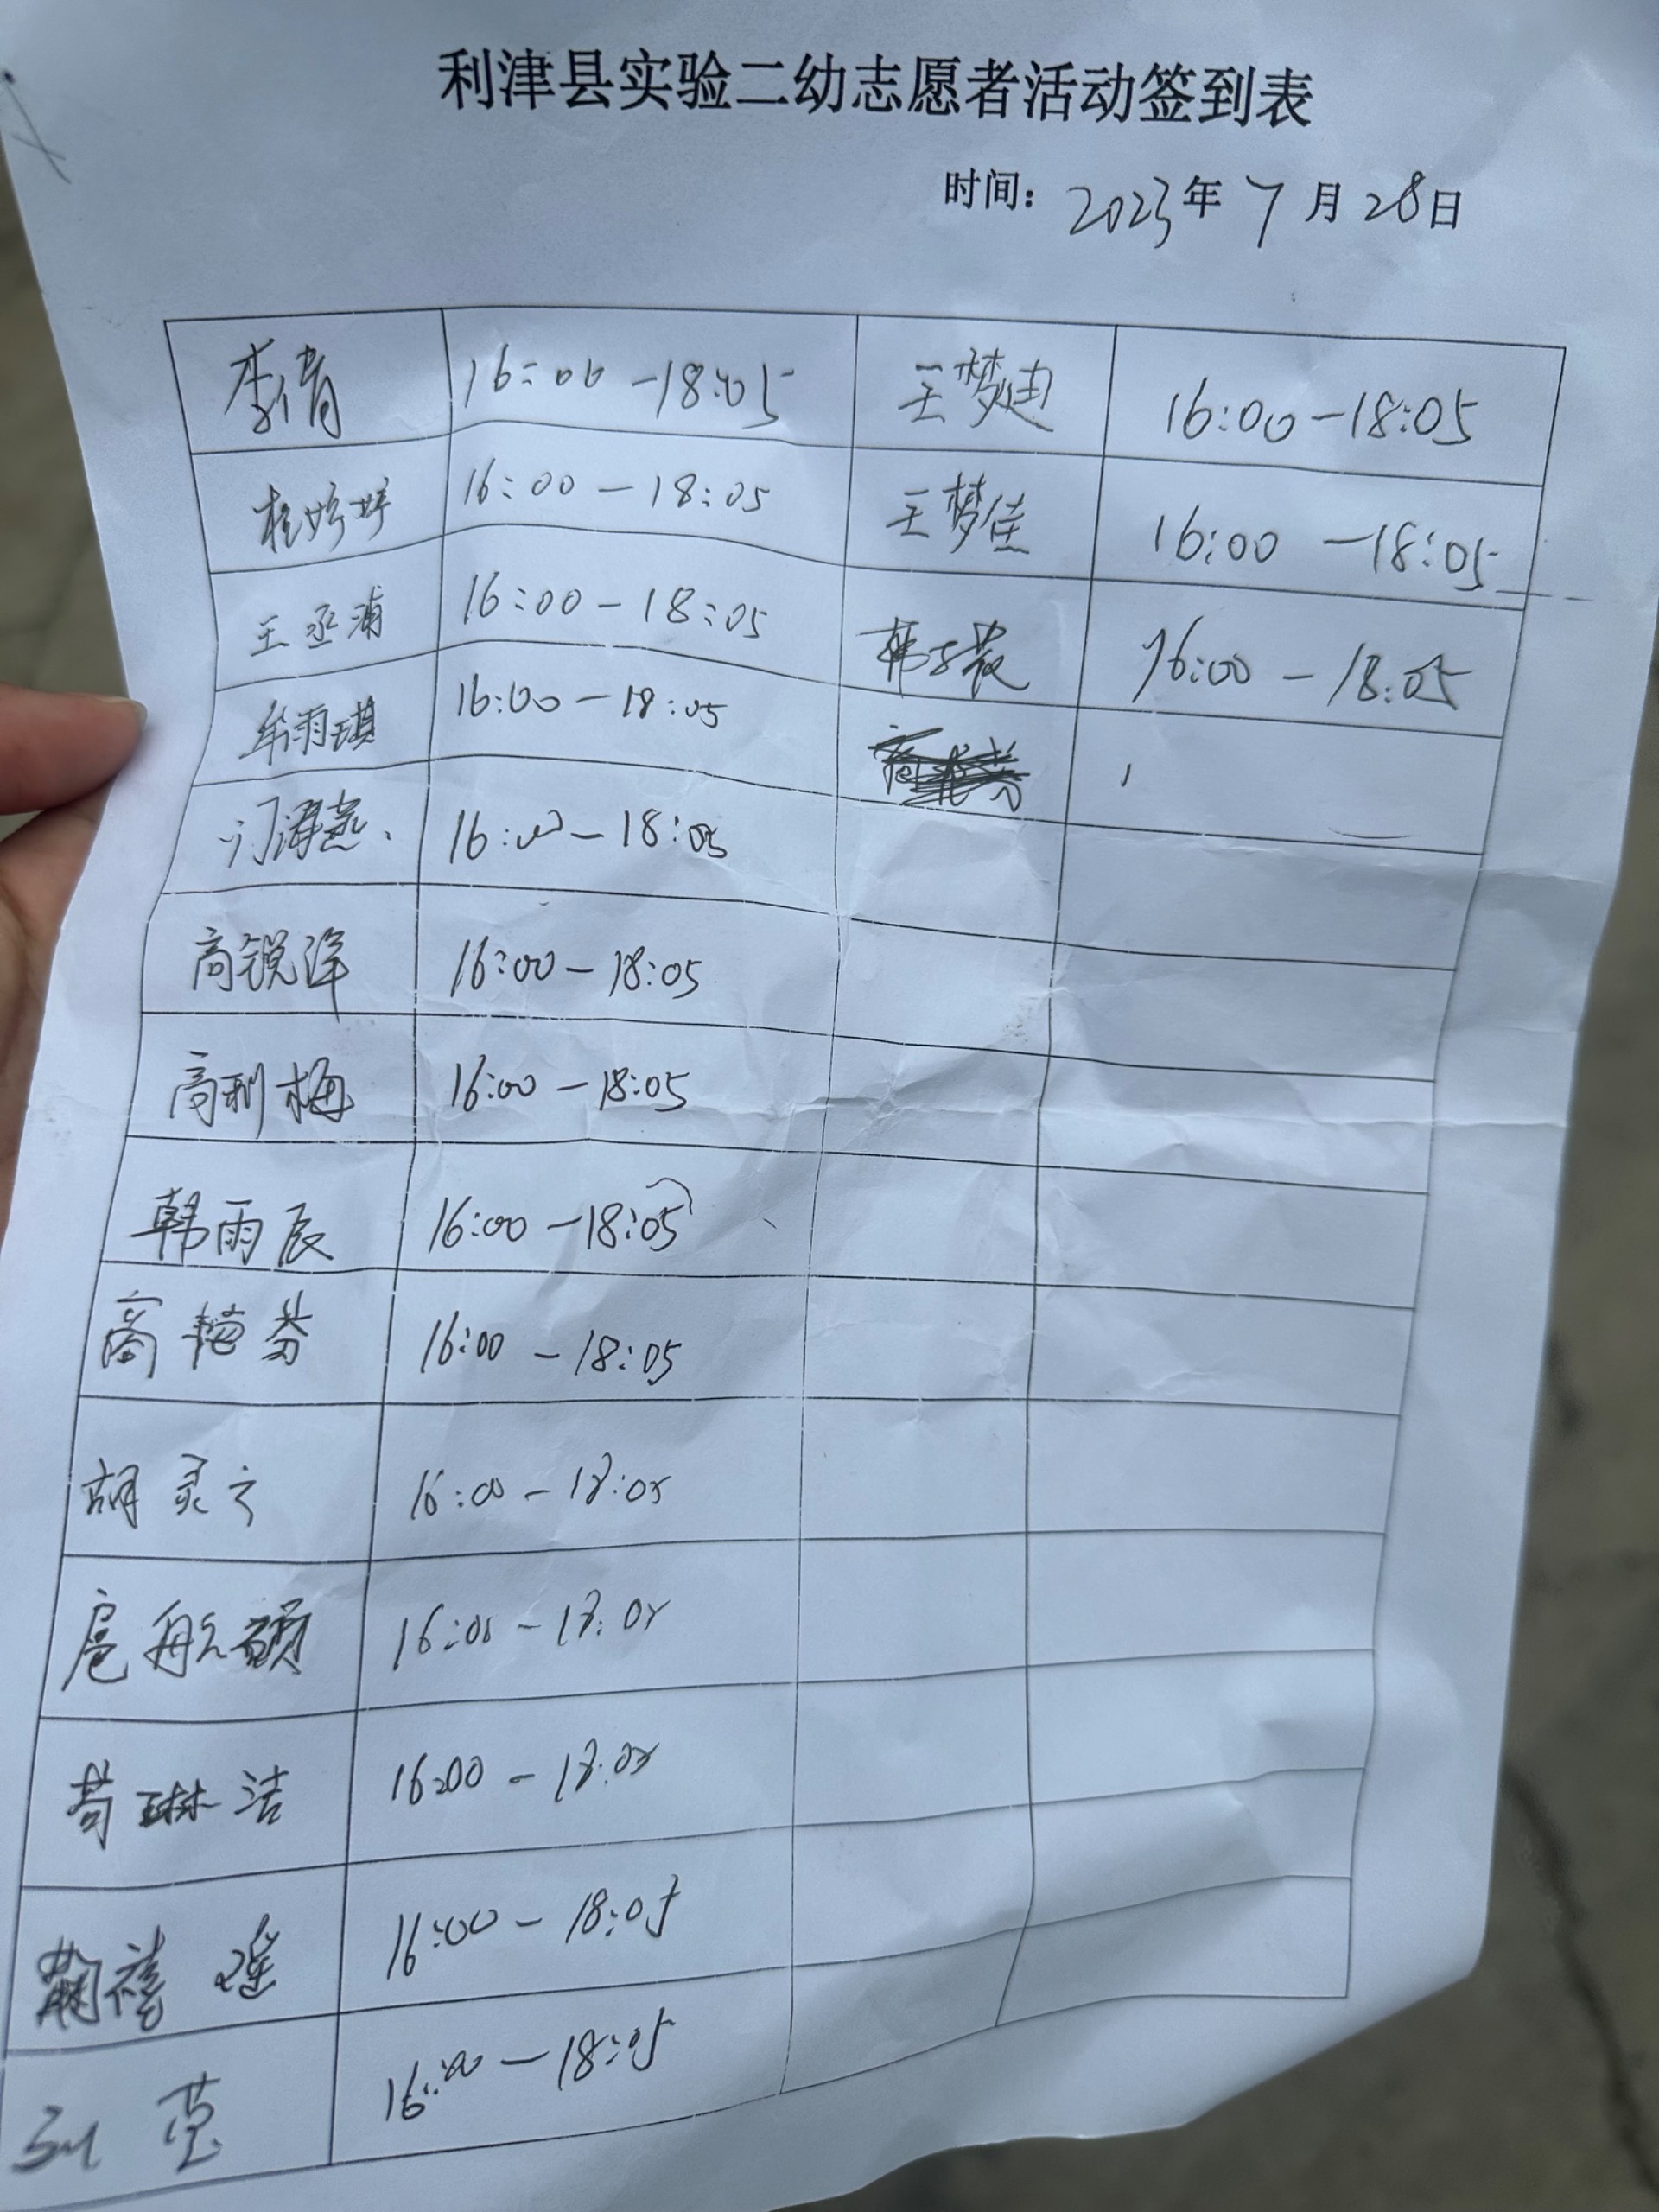 利津县实验二幼志愿者活动签到表
时间：2023年7月28日
李倩 16:00-18:05 王梦迪 16:00-18:05
杜婷婷 16:00-18:05 王梦佳 16:00-18:05
王丞浦 16:00-18:05 韩 16:00-18:05
牟雨琪 16:00-18:05
门海燕 16:00-18:05
商锐洋 16:00-18:05
高利梅 16:00-18:05
韩雨辰 16:00-18:05
商艳芬 16:00-18:05
胡灵 16:00-18:05
扈航硕 16:00-18:05
苟琳洁 16:00-18:05
禧瑶 16:00-18:05
16:00-18:05